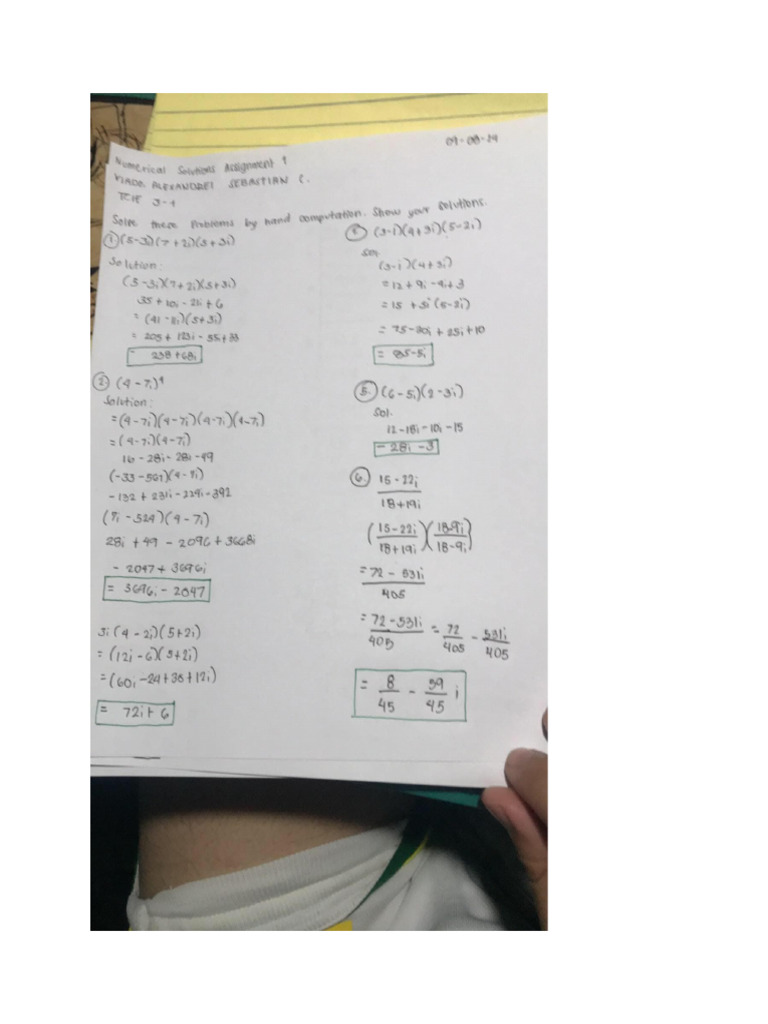 09-08-24
Numerical Solutions Assignment 1
ALEXANDREI SEBASTIAN C.
3-1
Solve these problems by hand computation. Show your solutions.
① (5-3i)(7+2i)(5+3i)
Solution:
(5-3i)(7+2i)(5+3i)
35+10i-21i+6
= (41-11i)(5+3i)
= 205+123i-55i+33
238+68i
② (4-7i)⁴
Solution:
= (4-7i)(4-7i)(4-7i)(4-7i)
= (4-7i)(4-7i)
16-28i-28i-49
(-33-56i)(4-7i)
-132+231i-224i-392
(7i-524)(4-7i)
28i+49-2096+3668i
-2047+3696i
= 3696i-2047
3i(4-2i)(5+2i)
= (12i-6)(5+2i)
= (60i-24+30+12i)
= 72i+6
(3-i)(4+3i)(5-2i)
Sol.
(3-i)(4+3i)
= 12+9i-4i+3
= 15+5i(5-2i)
= 75-30i+25i+10
= 85-5i
⑤ (6-5i)(2-3i)
Sol.
12-18i-10i-15
-28i-3
⑥ 15-22i
18+19i
(15-22i / 18+19i)(18-9i / 18-9i)
= 72-531i
405
= 72-531i / 405 = 72 / 405 - 531i / 405
= 8/45 - 59/45 i